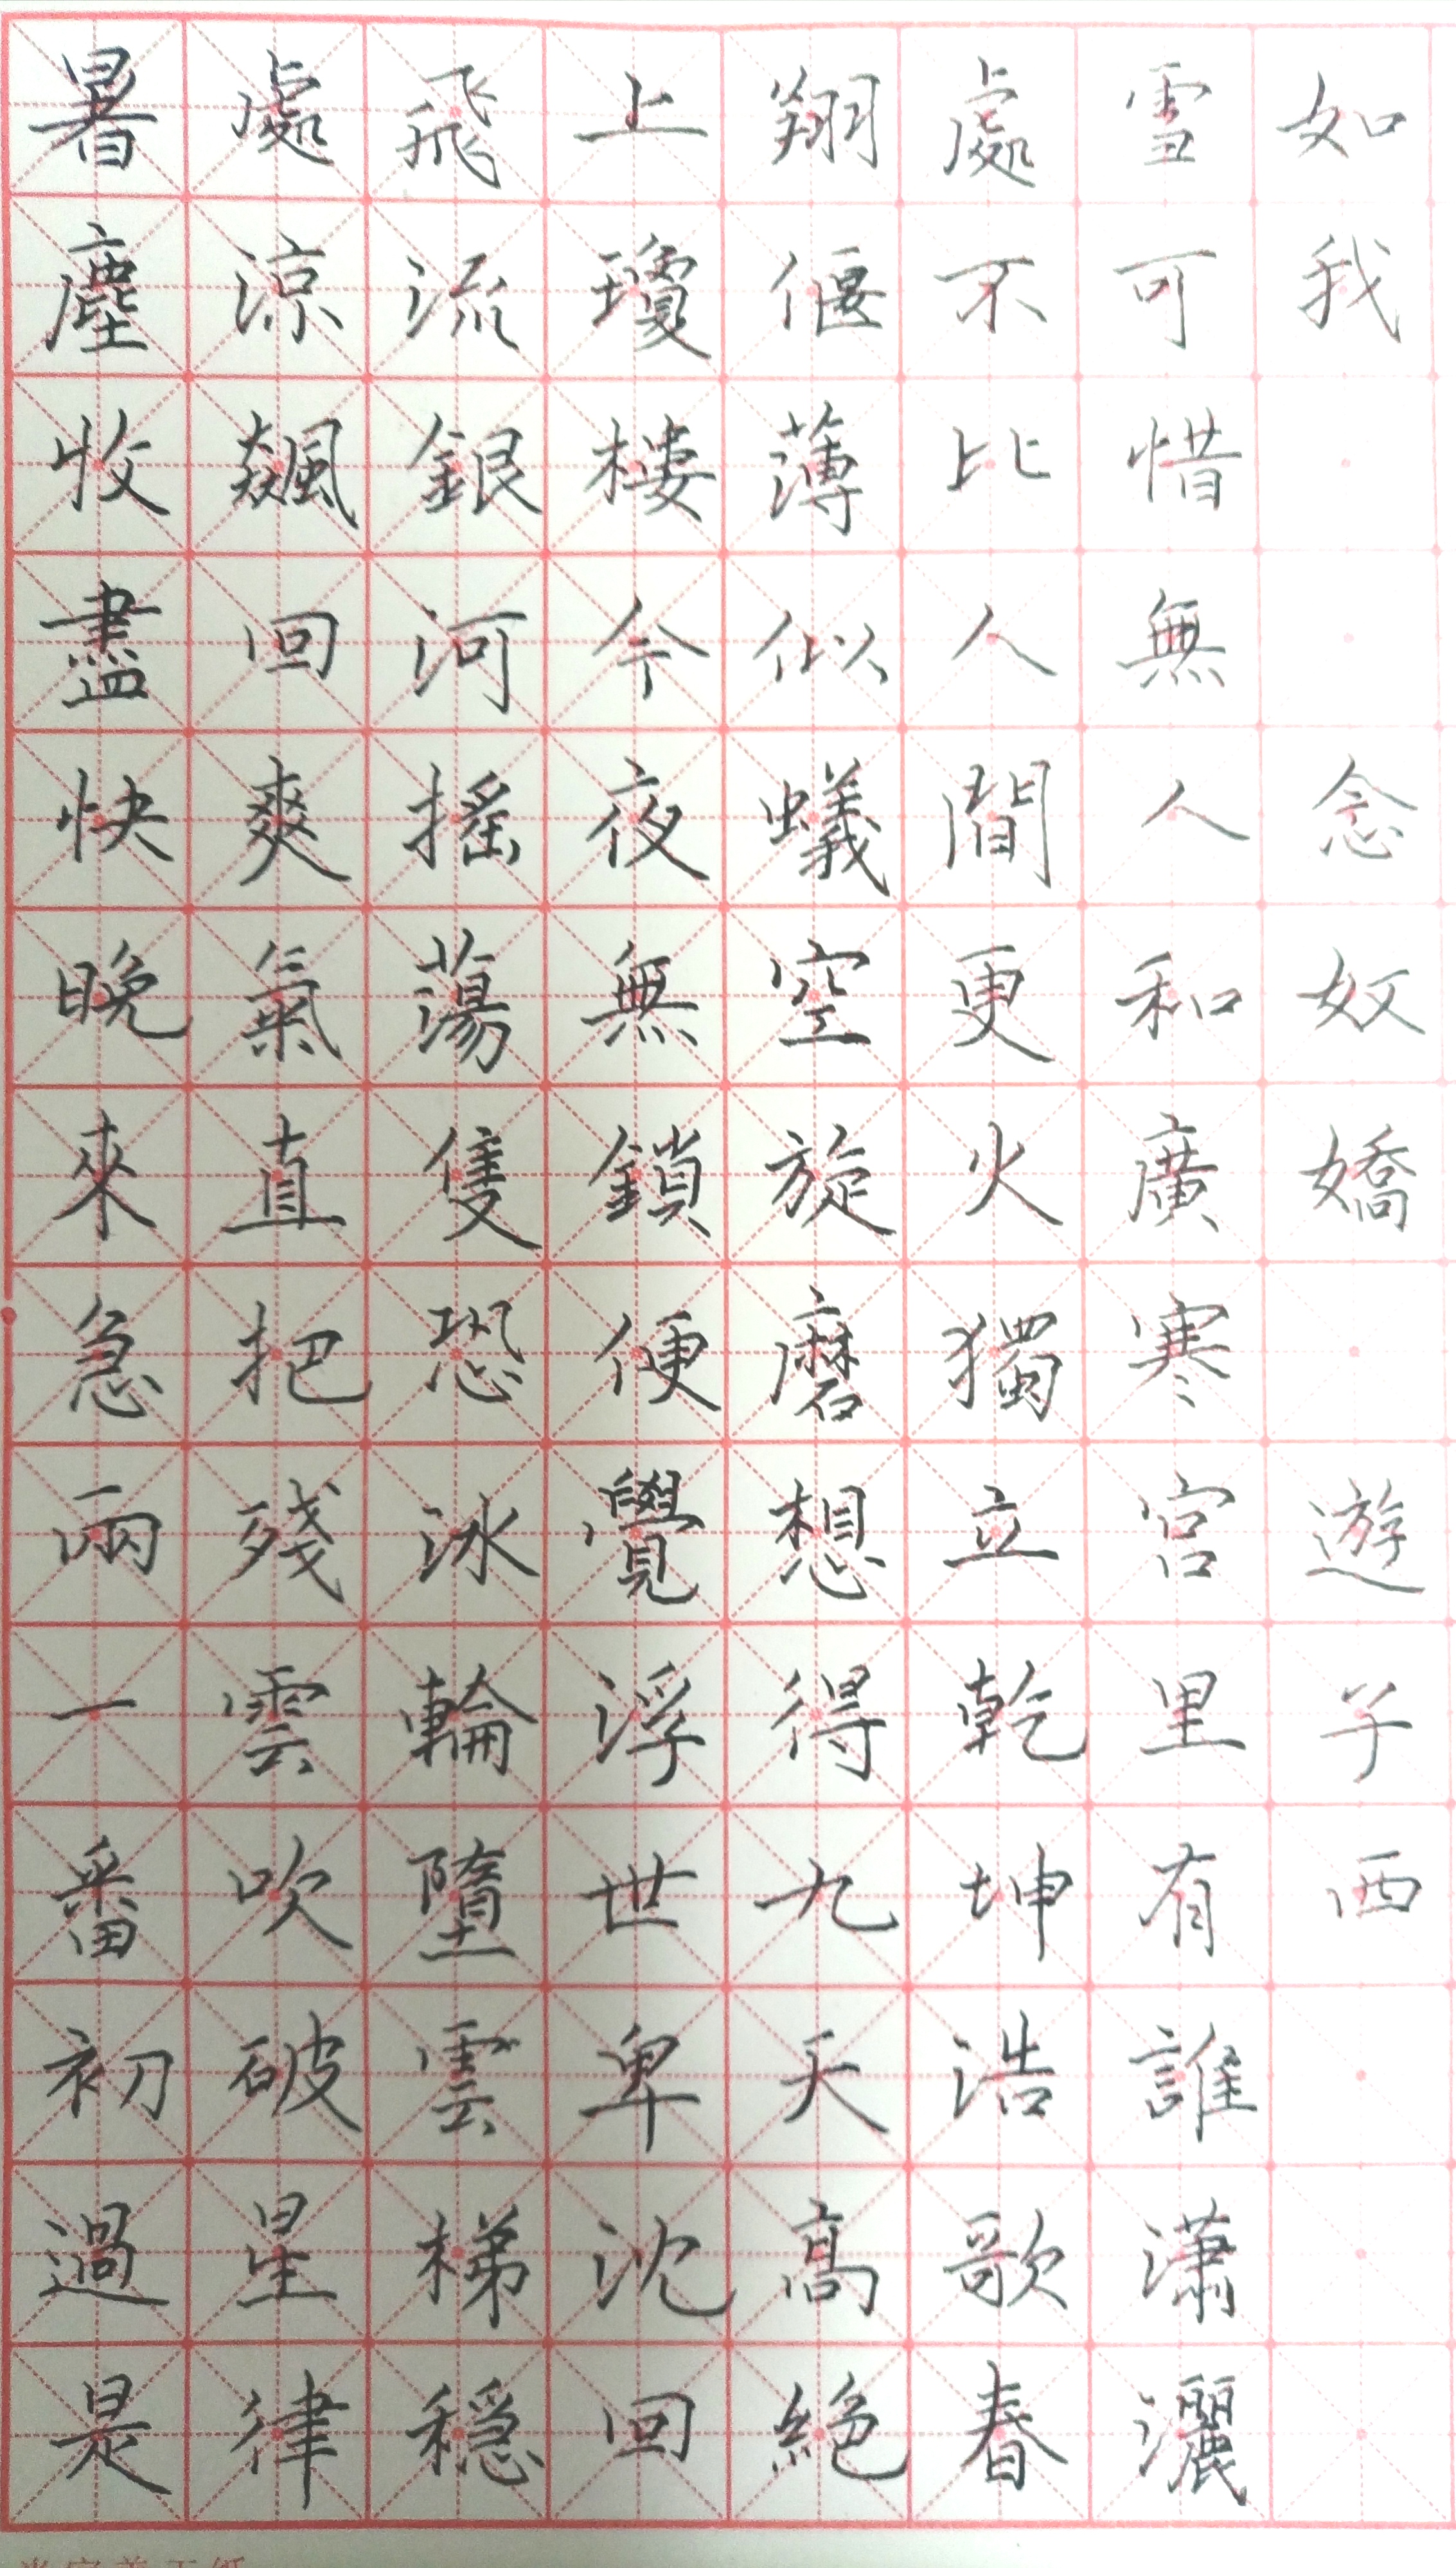 暑塵收盡快晚來急雨一番初過是
處涼飆回爽氣直把殘雲吹破星律
飛流銀河搖蕩隻恐冰輪墮雲梯穩
上瓊樓今夜無鎖便覺浮世卑沈回
翔偃薄似蟻空旋磨想得九天高絕
處不比人間更火獨立乾坤浩歌春
雪可惜無人和廣寒宮里有誰瀟灑
如我 念奴嬌 遊子西